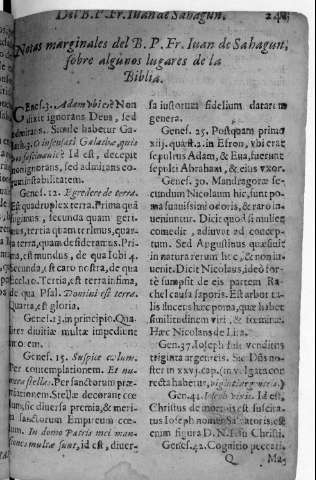 Del B. P. Fr. Iuan de Sahagun.
Notas marginales del B. P. Fr. Iuan de Sahagun,
sobre algunos lugares de la
Biblia.
Genes. 3. Adam vbi es? Non
dixit ignorans Deus, sed
admirans. Simile habetur Ga-
lat. 3. O insensati Galathæ, quis
vos fascinauit? Id est, decepit
non ignorans, sed admirans co-
rum instabilitatem.
Genes. 12. Egredere de terra.
Est quadruplex terra. Prima quã
gignimus, secunda quam gerI-
mus, tertia quam terImus, quar-
ta terra, quam desideramus. Pri-
ma, est mundus, de qua Iobi 4.
Secunda, est caro nostra, de qua
Eccl. 10. Tertia, est terra infima,
de qua Psal. Domini est terra.
Quarta, est gloria.
Genes. 13. in principio. Qua-
liter diuitiæ multæ impediunt
Genes. 15. Suspice cælum.
Per contemplationem. Et nu-
mera stellas. Per sanctorum præ-
Stellæ decorant cœ-
lum, sic diuersa præmia, & meri-
ta sanctorum Empireum cœ-
lum. In domo Patris mei man-
siones multæ sunt, id est, diuer-
sa iustorum fidelium
genera.
Genes. 25. Postquam primo
xiij. quast. 2. in Efron, vbi erat
sepultus Adam, & Eua, fuerunt
sepulti Abraham, & eius vxor.
Genes. 30. Mandragoræ se-
cundum Nicolaum hic, sunt po-
ma suauissimi odoris, & raro in-
ueniuntur. Dicit quod si mulier
comedit, adiuuat ad concep-
tum. Sed Augustinus quæsiuit
in natura rerum hæc, & non in-
uenit. Dicit Nicolaus, ideo for-
tè sumpsit de eis partem Ra-
chel causa saporis. Est arbor ta-
lis ferens hæc poma, quæ habet
similitudinem viri, & fœminæ.
Hæc Nicolaus de Lira.
Gen. 37. Ioseph fuit venditus
triginta argenteis. Sic Dñs nos-
ter in xxvj. cap. (vt in. Igata con
recta habetur, viginti argenteis.)
Gen. 41. Ioseph vixit. Id est,
Christus de mortuis est suscita-
tus Ioseph nomen Saluatoris, est
enim figura D. N. Iesu Christi.
Genes. 42. Cognitio peccati,
Q Ma-